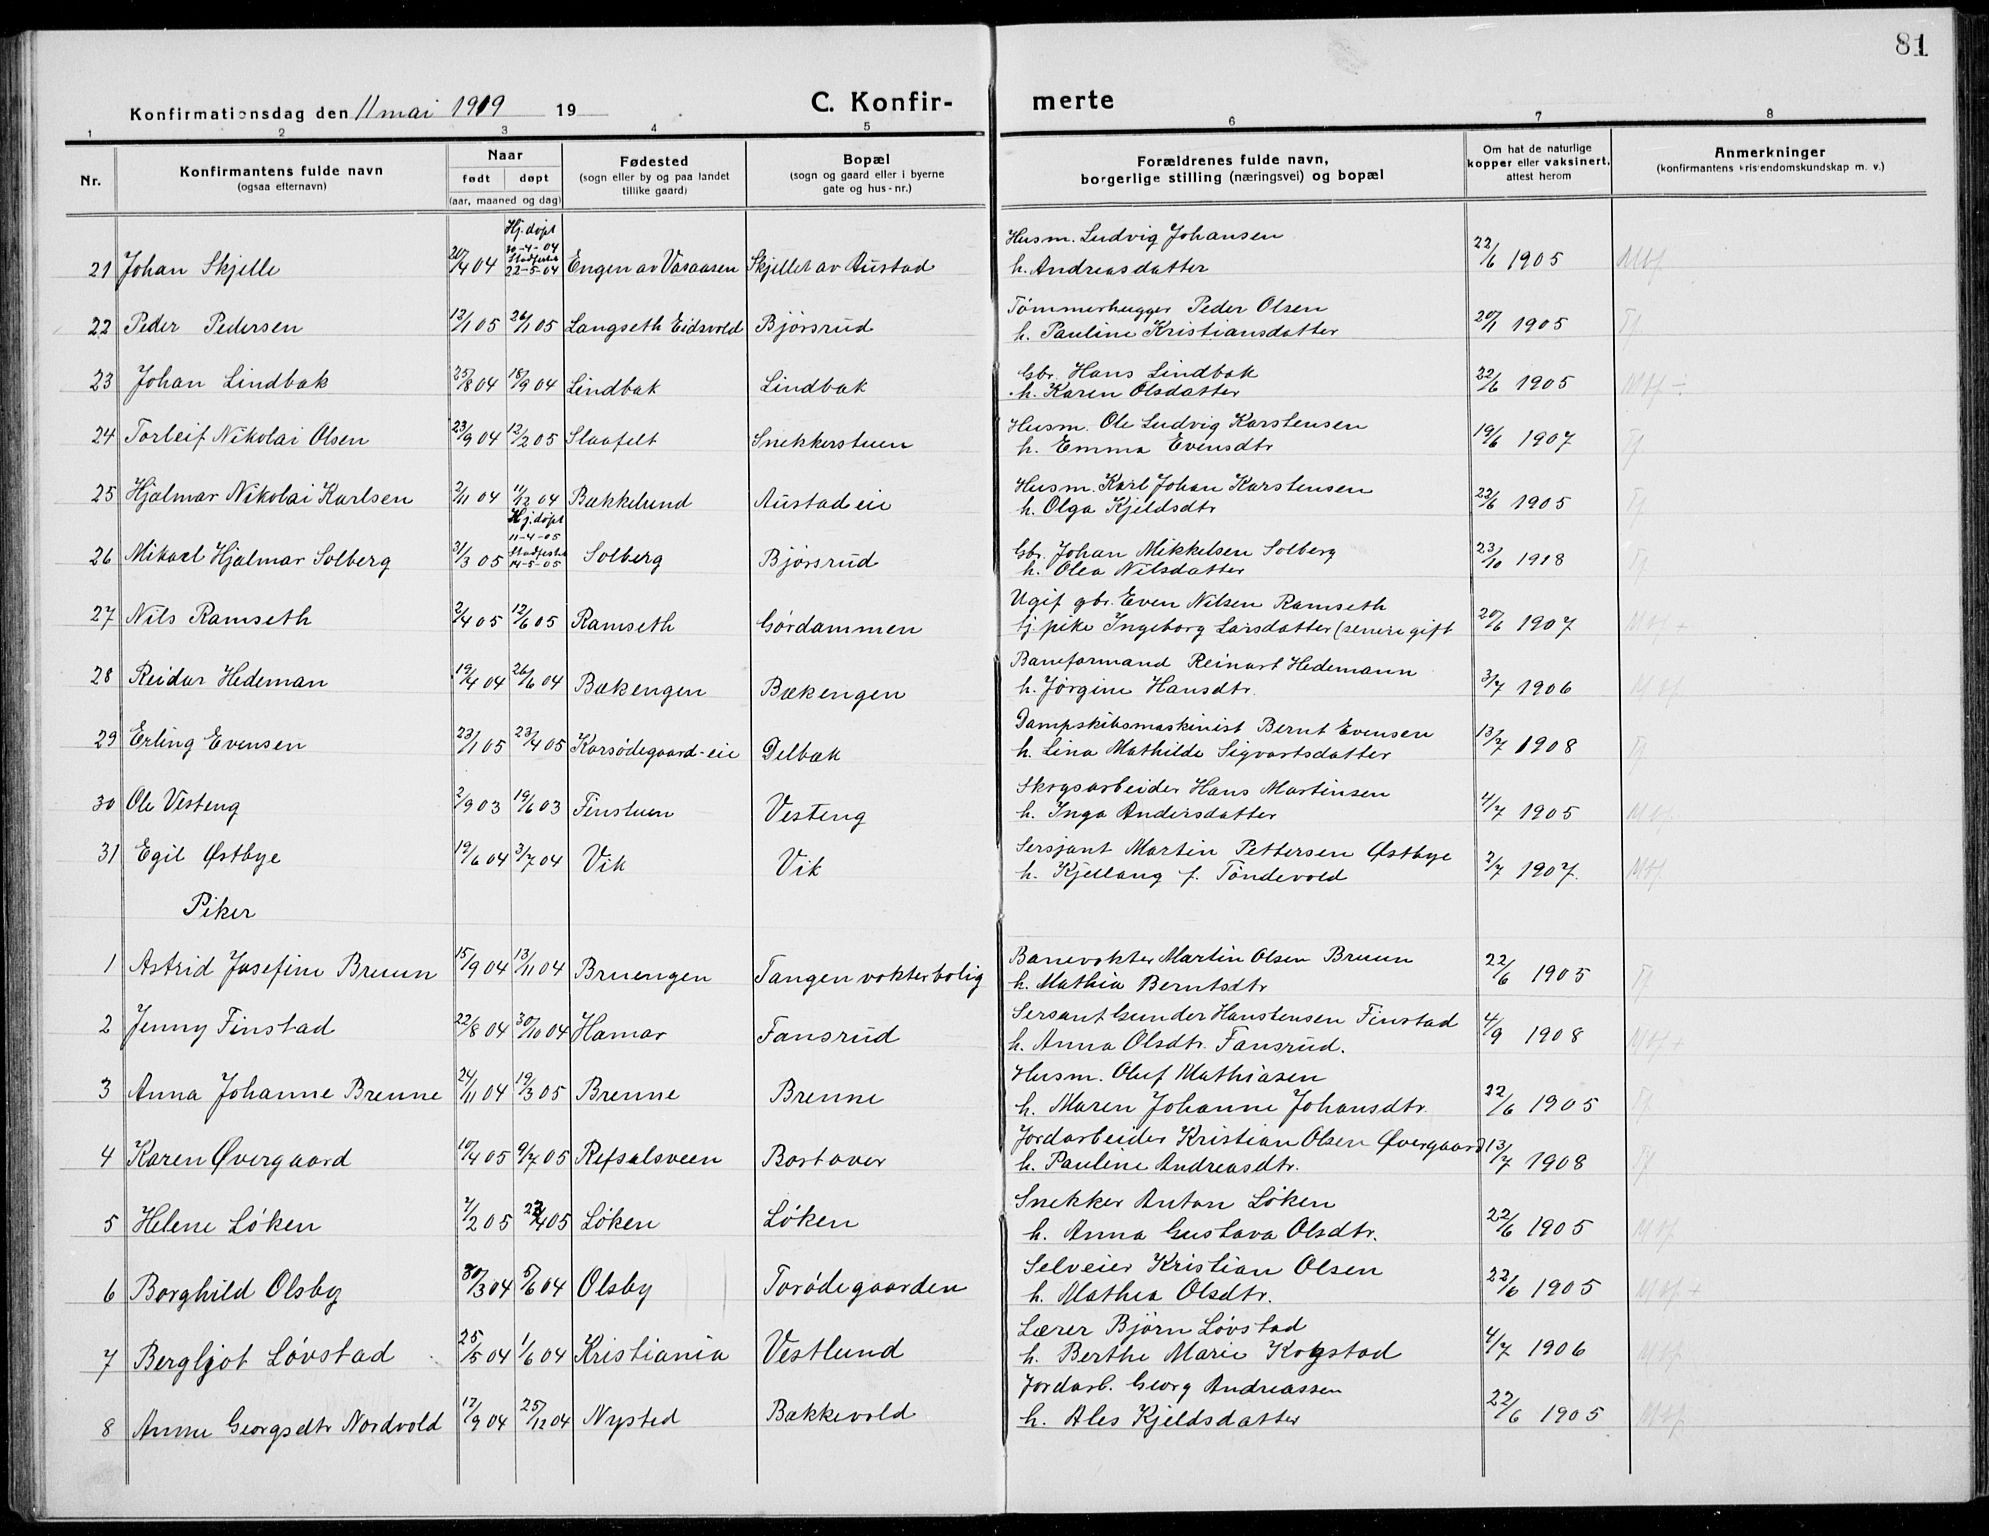 81
Konfirmationsdag den 11 mai 1919 19
C. Konfir-
merte
1 2 3 4 5 6 7 8
Nr.
Konfirmantens fulde navn
(ogsaa efternavn)
Naar
født døpt
(aar, maaned og dag)
Fødested
(sogn eller by og paa landet
tillike gaard)
Bopæl
(sogn og gaard eller i byerne
gate og hus-nr.)
Forældrenes fulde navn,
borgerlige stilling (næringsvei) og bopæl
Om hat de naturlige
kopper eller vaksinert,
attest herom
Anmerkninger
(konfirmantens kristendomskundskap m. v.)
Hj. døpt
30-4-04
Stadfestet
21 Johan Skjelle 20/4 04 22-5-04 Engen av Vasaasen Skjellet av Austad
Husm. Ludvig Johansen
h. Andreasdatter 22/6 1905 Mtf.
22 Peder Pedersen 12/1 05 26/1 05 Langseth Eidsvold Bjørsrud
Tømmerhugger Peder Olsen
h. Pauline Kristiansdatter 20/1 1905 Tf
23 Johan Lindbak 25/8 04 18/9 04 Lindbak Lindbak
Gbr. Hans Lindbak
h. Karen Olsdatter 22/6 1905 Mtf ÷
24 Torleif Nikolai Olsen 23/9 04 12/2 05 Slaafelt Snekkerstuen
Husm. Ole Ludvig Karstensen
h. Emma Evensdtr 19/6 1907 Tf
25 Hjalmar Nikolai Karlsen 2/11 04 11/12 04 Bakkelund Austad eie
Husm. Karl Johan Karstensen
h. Olga Kjeldsdtr 22/6 1905 Tf
Hj. døpt
11-4-05
Stadfestet
26 Mikael Hjalmar Solberg 31/3 05 14-5-05 Solberg Bjørsrud
Gbr. Johan Mikkelsen Solberg
h. Olea Nilsdatter 23/10 1918 Tf
27 Nils Ramseth 2/4 05 12/6 05 Ramseth Gørdammen
Ugif gbr. Even Nilsen Ramseth
tj. pike Ingeborg Larsdatter (senere gift 20/6 1907 Mtf +
28 Reidar Hedeman 19/4 04 26/6 04 Bækengen Bækengen
Baneformand Reinart Hedemann
h. Jørgine Hansdtr. 3/7 1906 Mtf.
29 Erling Evensen 23/1 05 23/4 05 Korsødegaard-eie Delbæk
Dampskibsmaskinist Bernt Evensen
h. Lina Mathilde Sigvartsdatter 13/7 1908 Tf
30 Ole Vesteng 2/9 03 19/6 03 Finstuen Vesteng
Skogsarbeider Hans Martinsen
h. Inga Andersdatter 4/7 1905 Mtf.
31 Egil Østbye 19/6 04 3/7 04 Vik Vik
Sersjant Martin Pettersen Østbye
h. Kjellaug f. Tøndevold 2/7 1907. Mtf.
Piker
1 Astrid Josefine Bruun 15/9 04 13/11 04 Bruengen Tangen vokterbolig
Banevokter Martin Olsen Bruun
h. Mathia Berntsdtr 22/6 1905 Tf
2 Jenny Finstad 22/8 04 30/10 04 Hamar Fansrud
Sersant Gunder Hanstensen Finstad
h. Anna Olsdtr. Fansrud. 4/9 1908 Mtf +
3 Anna Johanne Brenne 24/11 04 19/3 05 Brenne Brenne
Husm. Oluf Mathiasen
h. Maren Johanne Johansdtr. 22/6 1905 Tf
4 Karen Øvergaard 10/4 05 9/7 05 Refsalsveen Bortover
Jordarbeider Kristian Olsen Øvergaard
h. Pauline Andreasdtr. 13/7 1908 Tf
5 Helene Løken 7/2 05 23/4 05 Løken Løken
Snekker Anton Løken
h. Anna Gustava Olsdtr. 22/6 1905 Mtf
6 Borghild Olsby 30/3 04 5/6 04 Olsby Torødegaarden
Selveier Kristian Olsen
h. Mathea Olsdtr. 22/6 1905 Mtf +
7 Bergljot Løvstad 25/5 04 1/6 04 Kristiania Vestlund
Lærer Bjørn Løvstad
h. Berthe Marie Kogstad 4/7 1906 Mtf
8 Anne Georgsdtr Nordvold 17/9 04 25/12 04 Nysted Bakkevold
Jordarb. Georg Andreassen
h. Ales Kjeldsdatter 22/6 1905 Mtf